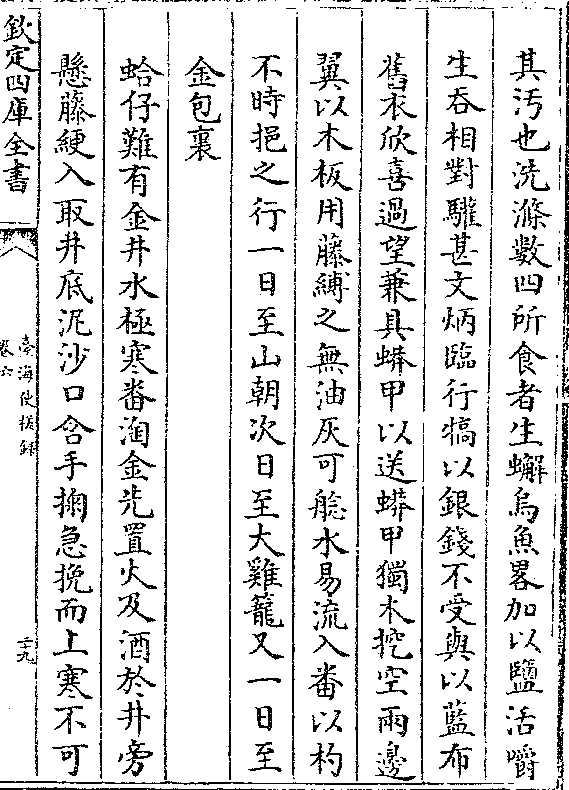 其汚也洗滌數四所食者生蠏烏魚畧加以鹽活嚼
生吞相對驩甚文炳臨行犒以銀錢不受與以藍布
舊衣欣喜過望兼具蟒甲以送蟒甲獨木挖空兩邊
翼以木板用藤縛之無油灰可艌水易流入番以杓
不時挹之行一日至山朝次日至大雞籠又一日至
金包裏
蛤仔難有金井水極寒番淘金先置火及酒於井旁
懸藤綆入取井底泥沙口含手掬急挽而上寒不可
欽定四庫全書
臺海使槎錄
卷六
三十九